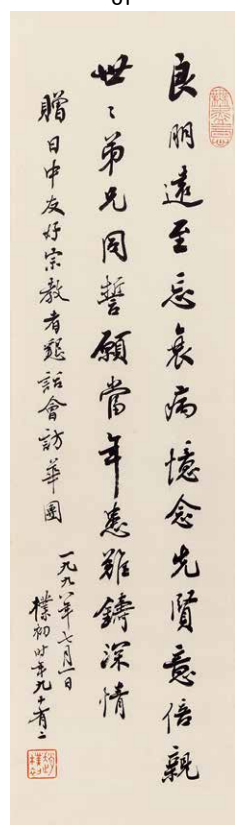 良朋遠至忘衰病憶念先賢意倍親
世〻弟兄同誓願當年患難鑄深情
贈日中友好宗教者懇話會訪華團
一九九八年七月一日
樸初時年九十有二